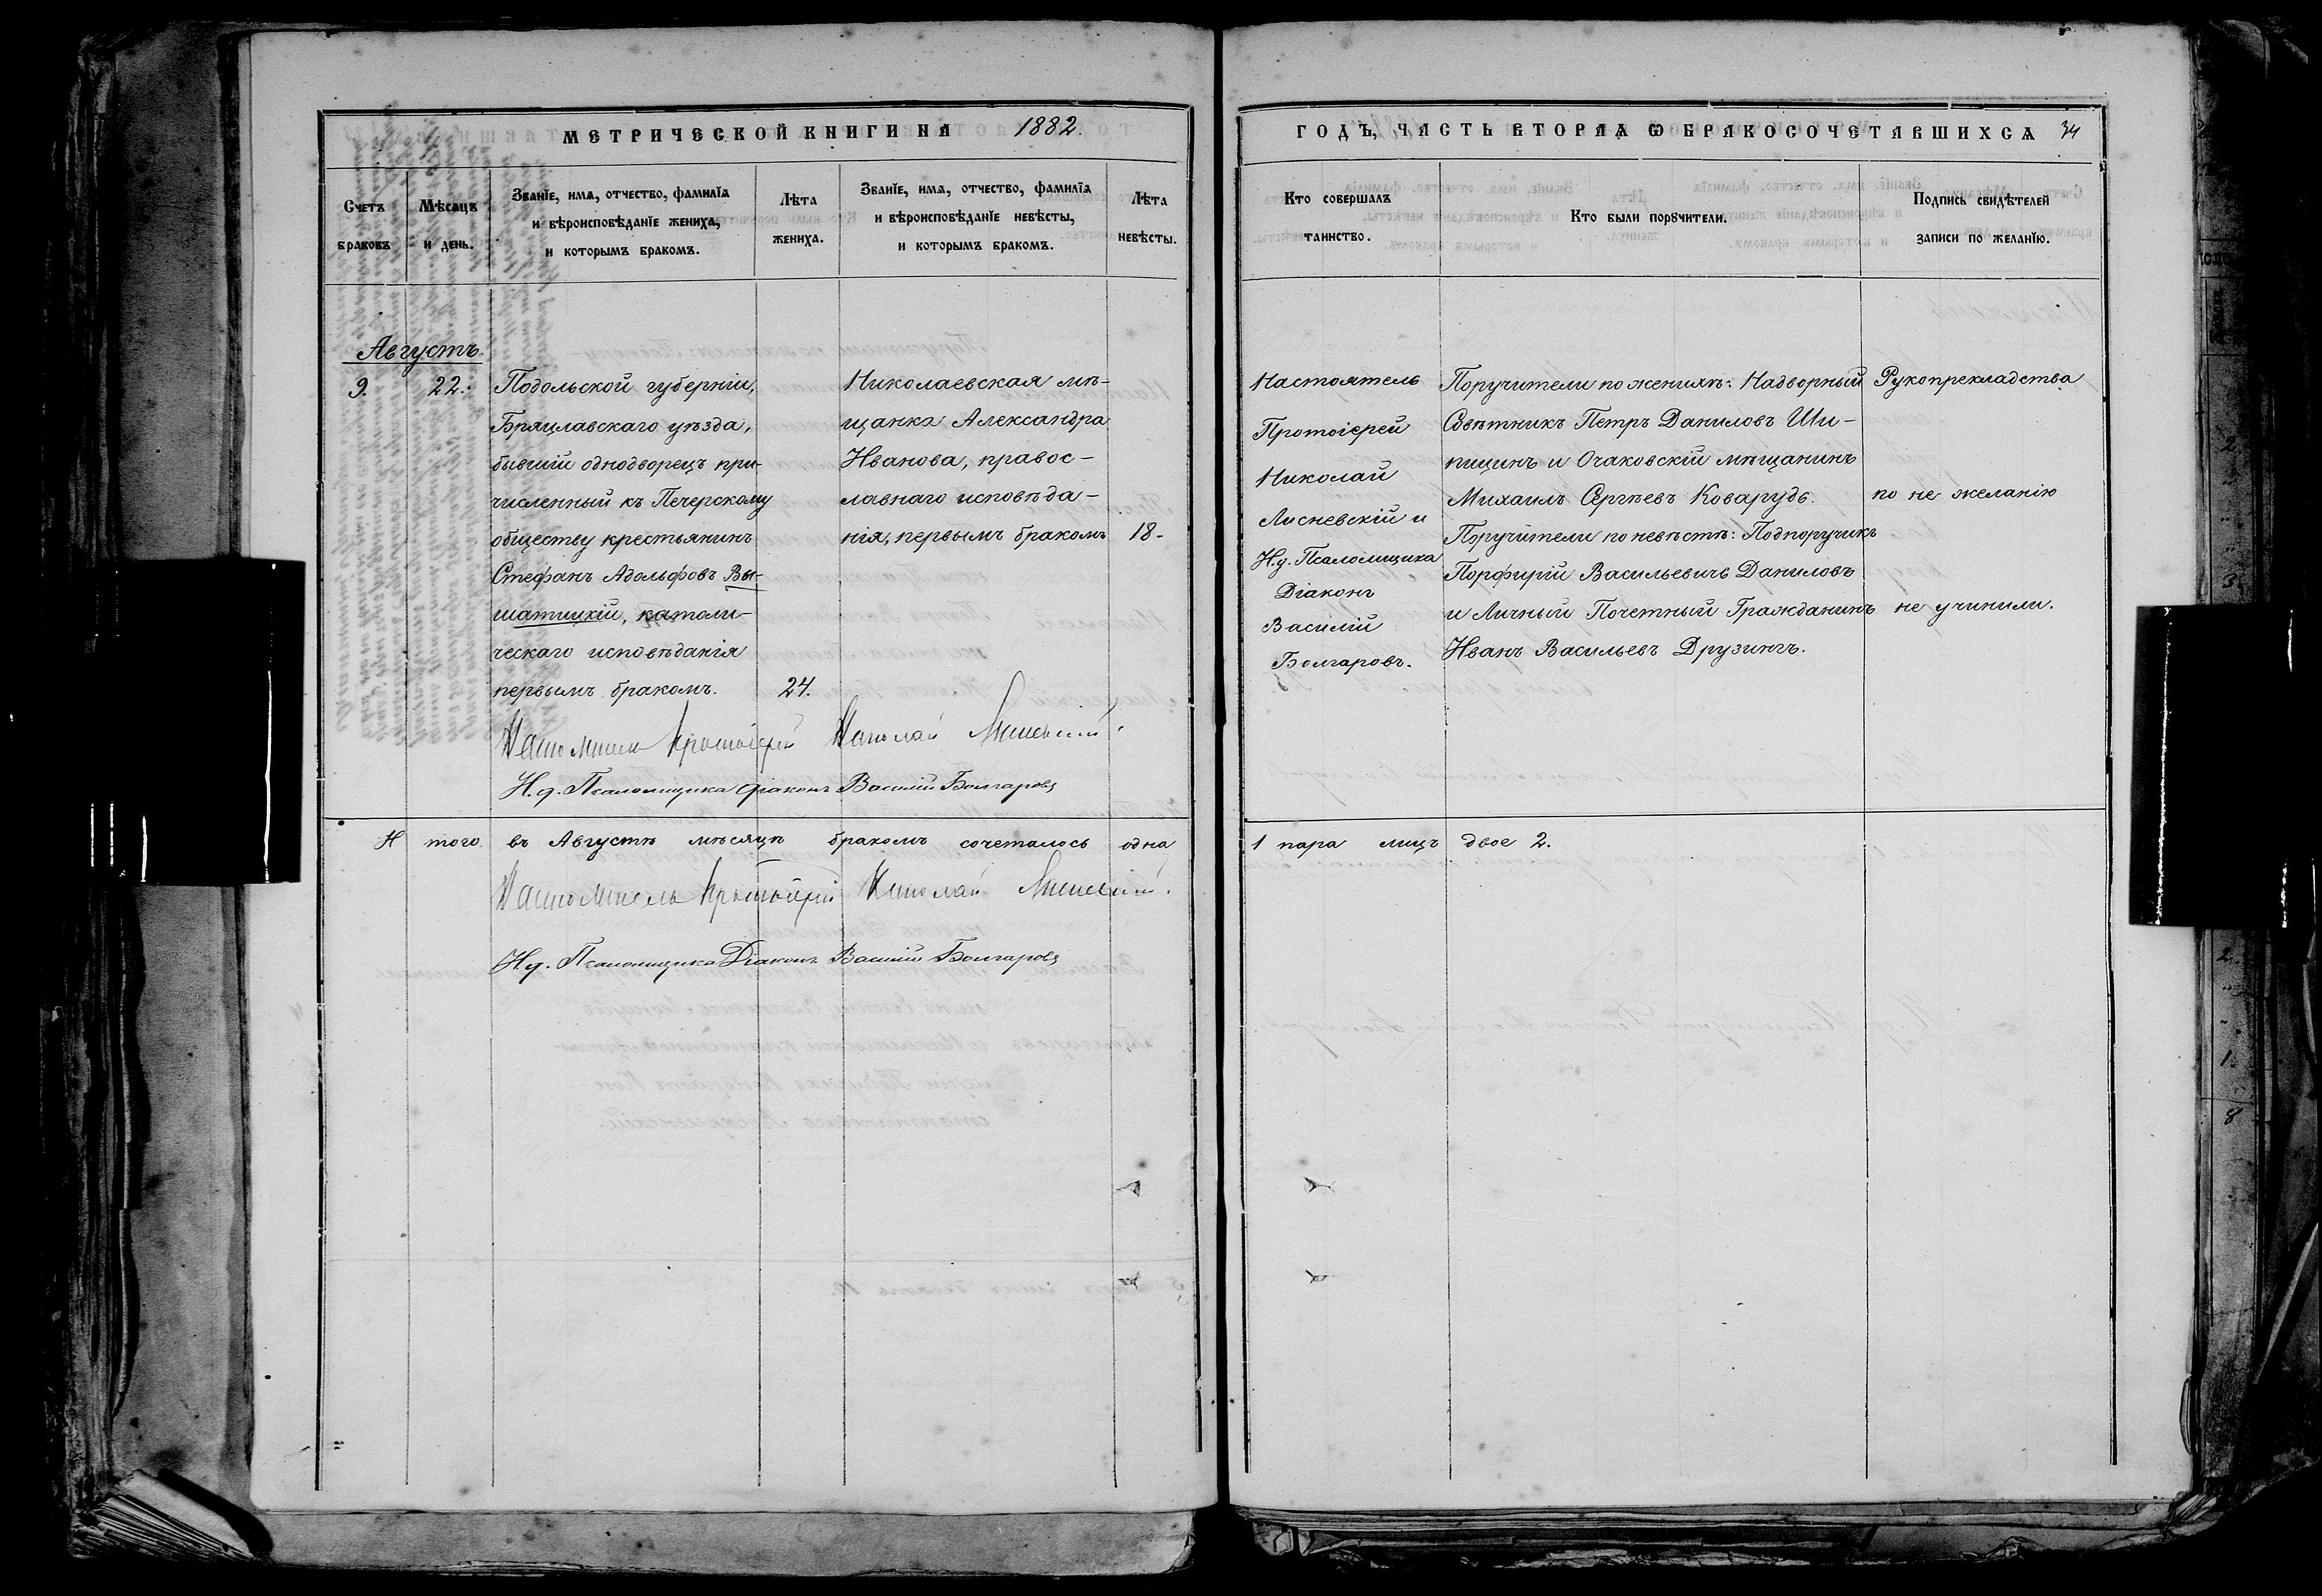 МЕТРИЧЕСКОЙ КНИГИ НА 1882.
Счетъ браковъ.
Мѣсяцъ и день.
Званїе, имя, отчество, фамилїя
и вѣроисповѣданїе жениха,
и которымъ бракомъ.
Лѣта
жениха.
Званїе, имя, отчество, фамилїя
и вѣроисповѣданїе невѣсты,
и которымъ бракомъ.
Лѣта
невѣсты.
Августъ.
9.
22.
Подольской губерніи,
Брацлавскаго уѣзда,
бывшій однодворецъ при-
численный къ Печерскому
обществу крестьянинъ
Стефанъ Адольфовъ Вы-
шатицкій, католи-
ческаго исповѣданія
первымъ бракомъ.
24.
Николаевская мѣ-
щанка Александра
Иванова, правос-
лавнаго исповѣда-
нія, первымъ бракомъ
18.
Настоятель Протоіерей Николай Лисневскій.
И.д. Псаломщика Діаконъ Василій Болгаровъ
И того въ Августѣ мѣсяцѣ бракомъ сочеталось одна
Настоятель Протоіерей Николай Лисневскій.
И.д. Псаломщика Діаконъ Василій Болгаровъ
ГОДЪ, ЧАСТЬ ВТОРАЯ Ѡ БРАКОСОЧЕТАВШИХСЯ 34
Кто совершалъ
таинство.
Кто были порꙋчители.
Подпись свидѣтелей
записи по желанїю.
Настоятель
Протоіерей
Николай
Лисневскій и
И.д. Псаломщика
Діаконъ
Василій
Болгаровъ.
Поручители по женихѣ: Надворный
Совѣтникъ Петръ Даниловъ Ши-
пицинъ и Очаковскій мѣщанинъ
Михаилъ Сергѣевъ
Поручители по невѣстѣ: Подпоручикъ
Порфирій Васильевичъ Даниловъ
и Личный Почетный Гражданинъ
Иванъ Васильевъ Друзингъ.
Рукоприкладства
по не желанію
не учинили.
1 пара лицъ двое 2.